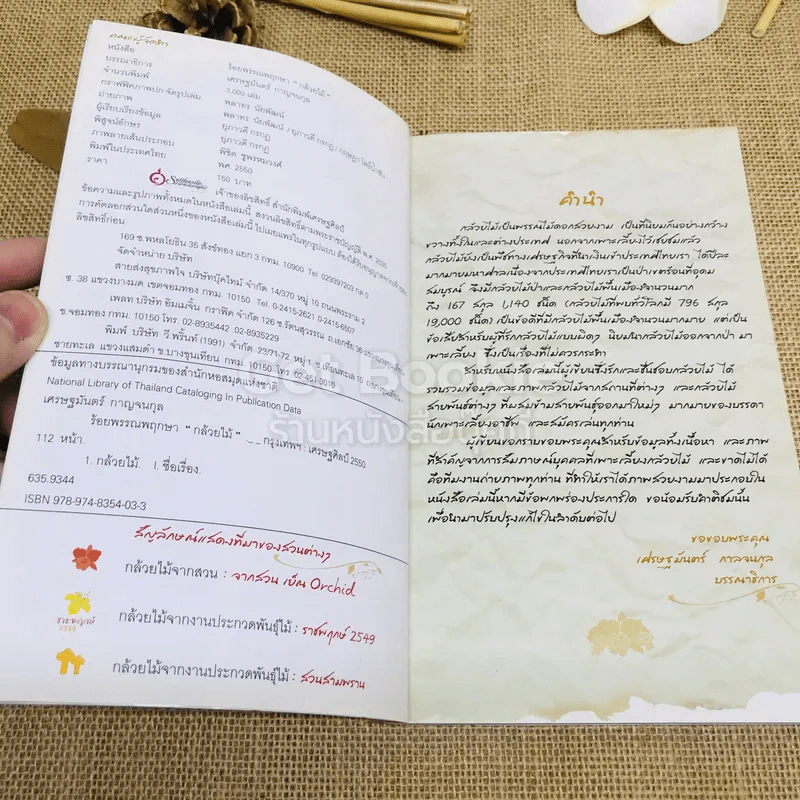 คณะผู้จัดทำ
หนังสือ ร้อยพรรณพฤกษา " กล้วยไม้ "
บรรณาธิการ เศรษฐมันตร์ กาญจนกุล
จำนวนพิมพ์ 3,000 เล่ม
กราฟฟิคภาพปก จัดรูปเล่ม พลาทร นัยพัฒน์
ถ่ายภาพ พลาทร นัยพัฒน์ / ยุภาวดี กรกฎ /
ผู้เรียบเรียงข้อมูล ยุภาวดี กรกฎ
พิสูจน์อักษร ยุภาวดี กรกฎ
ภาพลายเส้นประกอบ พิชิต ชูพรหมวงศ์
พิมพ์ในประเทศไทย พศ. 2550
ราคา 150 บาท
เจ้าของลิขสิทธิ์ สำนักพิมพ์เศรษฐศิลป์
ข้อความและรูปภาพทั้งหมดในหนังสือเล่มนี้ สงวนลิขสิทธิ์ตามพระราชบัญญัติ พ.ศ. 2535
การคัดลอกส่วนใดส่วนหนึ่งของหนังสือเล่มนี้ ไปเผยแพร่ในทุกรูปแบบ ต้องได้รับอนุญาต
ลิขสิทธิ์ก่อน
169 ซ.พหลโยธิน 35 ลาดยาว แยก 3 กทม. 10900 Tel 029397203
จัดจำหน่าย บริษัท
สายส่งสุขภาพใจ บริษัทบุ๊คไทม์ จำกัด 14/370 หมู่ 10 ถนนพระราม 2
ซ. 38 แขวงบางมด เขตจอมทอง กทม. 10150 Tel 0-2415-2621 0-2415-6507
เพลท บริษัท อิมเมจิ้น กราฟิค จำกัด 126 ซ.รัตนสุวรรณ ถ.เอกชัย
ข.จอมทอง กทม. 10150 Tel 02-8935442 02-8935229
พิมพ์ บริษัท วี.พริ้นท์ (1991) จำกัด 23/71-72 หมู่
ชายทะเล แขวงแสมดำ ข.บางขุนเทียน กทม. 10150 โทร 02-451-3010
ข้อมูลทางบรรณานุกรมของสำนักหอสมุดแห่งชาติ
National Library of Thailand Cataloging In Publication Data
เศรษฐมันตร์ กาญจนกุล
ร้อยพรรณพฤกษา " กล้วยไม้ " _ _ กรุงเทพฯ : เศรษฐศิลป์ 2550
112 หน้า.
1. กล้วยไม้. I. ชื่อเรื่อง.
635.9344
ISBN 978-974-8354-03-3
สัญลักษณ์แสดงที่มาของสวนต่างๆ
กล้วยไม้จากสวน : จากสวน เป็ณ Orchid
ราชพฤกษ์
2549
กล้วยไม้จากงานประกวดพันธุ์ไม้ : ราชพฤกษ์ 2549
กล้วยไม้จากงานประกวดพันธุ์ไม้ : สวนสามพราน
คำนำ
กล้วยไม้เป็นพรรณไม้ดอกสวยงาม เป็นที่นิยมกันอย่างกว้าง
ขวางทั้งในและต่างประเทศ นอกจากเพาะเลี้ยงไว้เชยชมแล้ว
กล้วยไม้ยังเป็นพืชทางเศรษฐกิจที่นำเงินเข้าประเทศไทยเรา ได้ปีละ
มากมายมหาศาลเนื่องจากประเทศไทยเราเป็นป่าเขตร้อนที่อุดม
สมบูรณ์ จึงมีกล้วยไม้ป่าและกล้วยไม้พื้นเมืองจำนวนมาก
ถึง 167 สกุล 1,140 ชนิด (กล้วยไม้ที่พบทั่วโลกมี 796 สกุล
19,000 ชนิด) เป็นข้อดีที่มีกล้วยไม้พื้นเมืองจำนวนมากมาย แต่เป็น
ข้อเสียสำหรับผู้ที่รักกล้วยไม้แบบผิดๆ นิยมนำกล้วยไม้ออกจากป่า มา
เพาะเลี้ยง ซึ่งเป็นเรื่องที่ไม่ควรกระทำ
สำหรับหนังสือเล่มนี้ผู้เขียนซึ่งรักและชื่นชอบกล้วยไม้ ได้
รวบรวมข้อมูลและภาพกล้วยไม้จากสถานที่ต่างๆ และกล้วยไม้
สายพันธุ์ต่างๆ ที่ผสมข้ามสายพันธุ์ออกมาใหม่ๆ มากมายของบรรดา
นักเพาะเลี้ยงอาชีพ และสมัครเล่นทุกท่าน
ผู้เขียนขอกราบขอบพระคุณสำหรับข้อมูลทั้งเนื้อหา และภาพ
ที่สำคัญจากการสัมภาษณ์บุคคลที่เพาะเลี้ยงกล้วยไม้ และขาดไม่ได้
คือทีมงานถ่ายภาพทุกท่าน ที่ทำให้เราได้ภาพสวยงามมาประกอบใน
หนังสือเล่มนี้หากมีข้อบกพร่องประการใด ขอน้อมรับคำติชมนั้น
เพื่อนำมาปรับปรุงแก้ไขในลำดับต่อไป
ขอขอบพระคุณ
เศรษฐมันตร์ กาลจนกุล
บรรณาธิการ
ร้านหนังสือบุ๊คดี